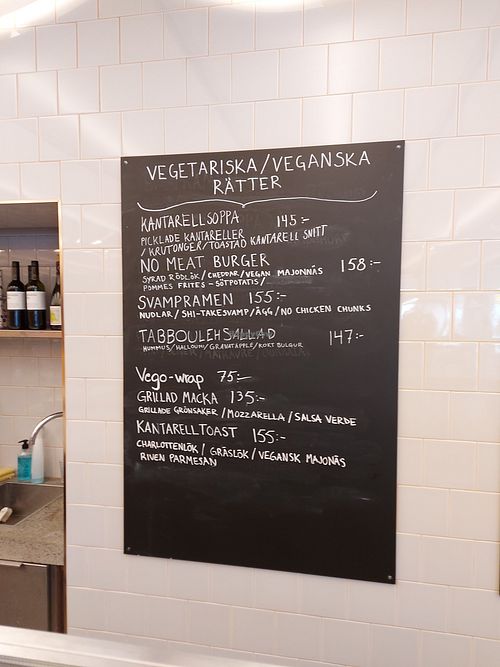 VEGETARISKA/VEGANSKA
RÄTTER
KANTARELLSOPPA 145:-
PICKLADE KANTARELLER
/KRUTONGER/TOASTAD KANTARELL SNITT
NO MEAT BURGER 158:-
SYRAD RÖDLÖK/CHEDDAR/VEGAN MAJONNÄS
POMMES FRITES - SÖTPOTATIS/
SVAMPRAMEN 155:-
NUDLAR/SHI-TAKESVAMP/ÄGG/NO CHICKEN CHUNKS
TABBOULEHSALLAD 147:-
HUMMUS/HALLOUMI/GRANATÄPPLE/ROKT BULGUR
Vego-wrap 75:-
GRILLAD MACKA 135:-
GRILLADE GRÖNSAKER/MOZZARELLA/SALSA VERDE
KANTARELLTOAST 155:-
CHARLOTTENLÖK/GRÄSLÖK/VEGANSK MAJONÄS
RIVEN PARMESAN